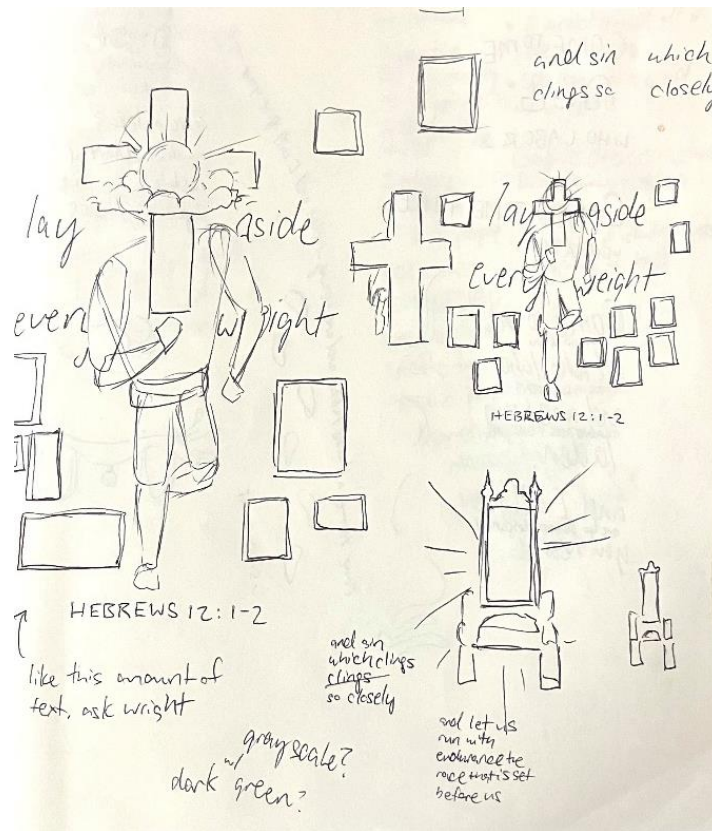 and sin which
clings so closely
lay aside
every weight
HEBREWS 12:1-2
lay aside
every weight
HEBREWS 12:1-2
like this amount of
text, ask wright
and sin
which clings
clings
so closely
and let us
run with
endurance the
race that is set
before us
grayscale?
w/
dark green?